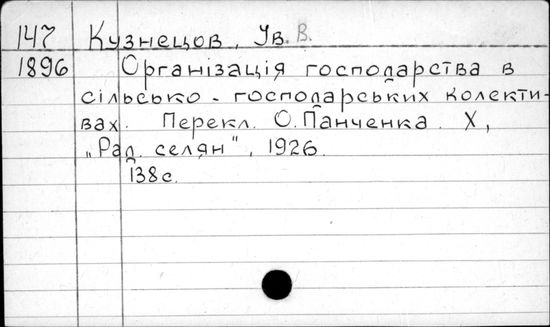 147 Кузнецов, Ів. В.
1896 Організація господарства в
сільсько-господарських колекти-
вах. Перекл. О. Панченка. Х,
„Рад. селян", 1926.
138 с.